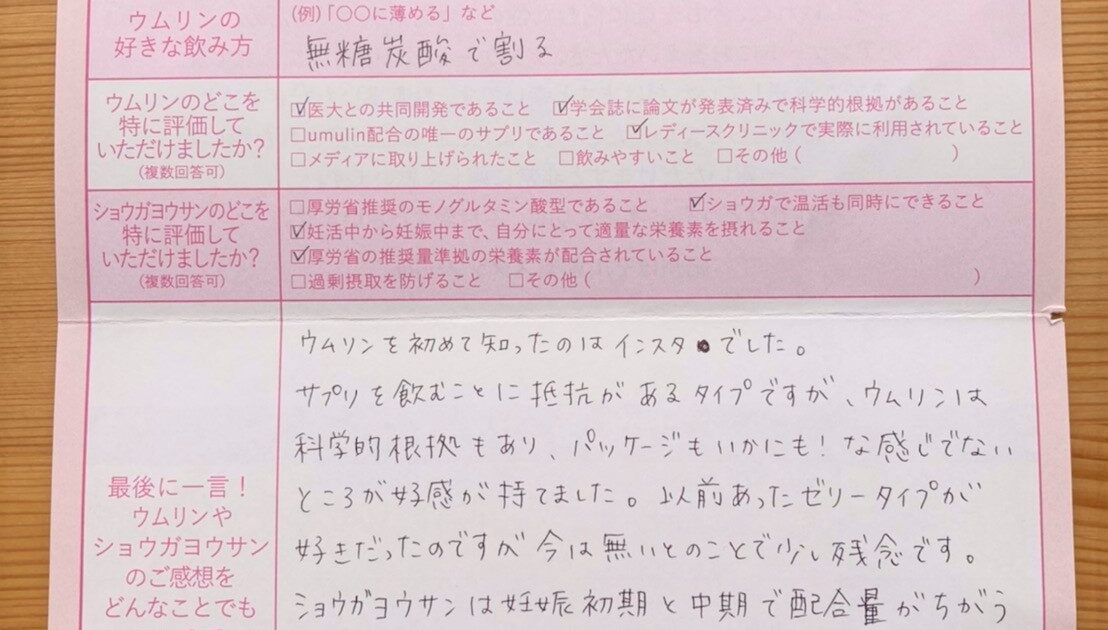 ウムリンの
好きな飲み方
(例)「〇〇に薄める」など
無糖炭酸で割る
ウムリンのどこを
特に評価して
いただけましたか?
(複数回答可)
☑医大との共同開発であること ☑学会誌に論文が発表済みで科学的根拠があること
□umulin配合の唯一のサプリであること ☑レディースクリニックで実際に利用されていること
□メディアに取り上げられたこと □飲みやすいこと □その他( )
ショウガヨウサンのどこを
特に評価して
いただけましたか?
(複数回答可)
□厚労省推奨のモノグルタミン酸型であること ☑ショウガで温活も同時にできること
☑妊活中から妊娠中まで、自分にとって適量な栄養素を摂れること
☑厚労省の推奨量準拠の栄養素が配合されていること
□過剰摂取を防げること □その他( )
最後に一言!
ウムリンや
ショウガヨウサン
のご感想を
どんなことでも
ウムリンを初めて知ったのはインスタでした。
サプリを飲むことに抵抗があるタイプですが、ウムリンは
科学的根拠もあり、パッケージもいかにも!な感じでない
ところが好感が持てました。以前あったゼリータイプが
好きだったのですが今は無いとのことで少し残念です。
ショウガヨウサンは妊娠初期と中期で配合量がちがう